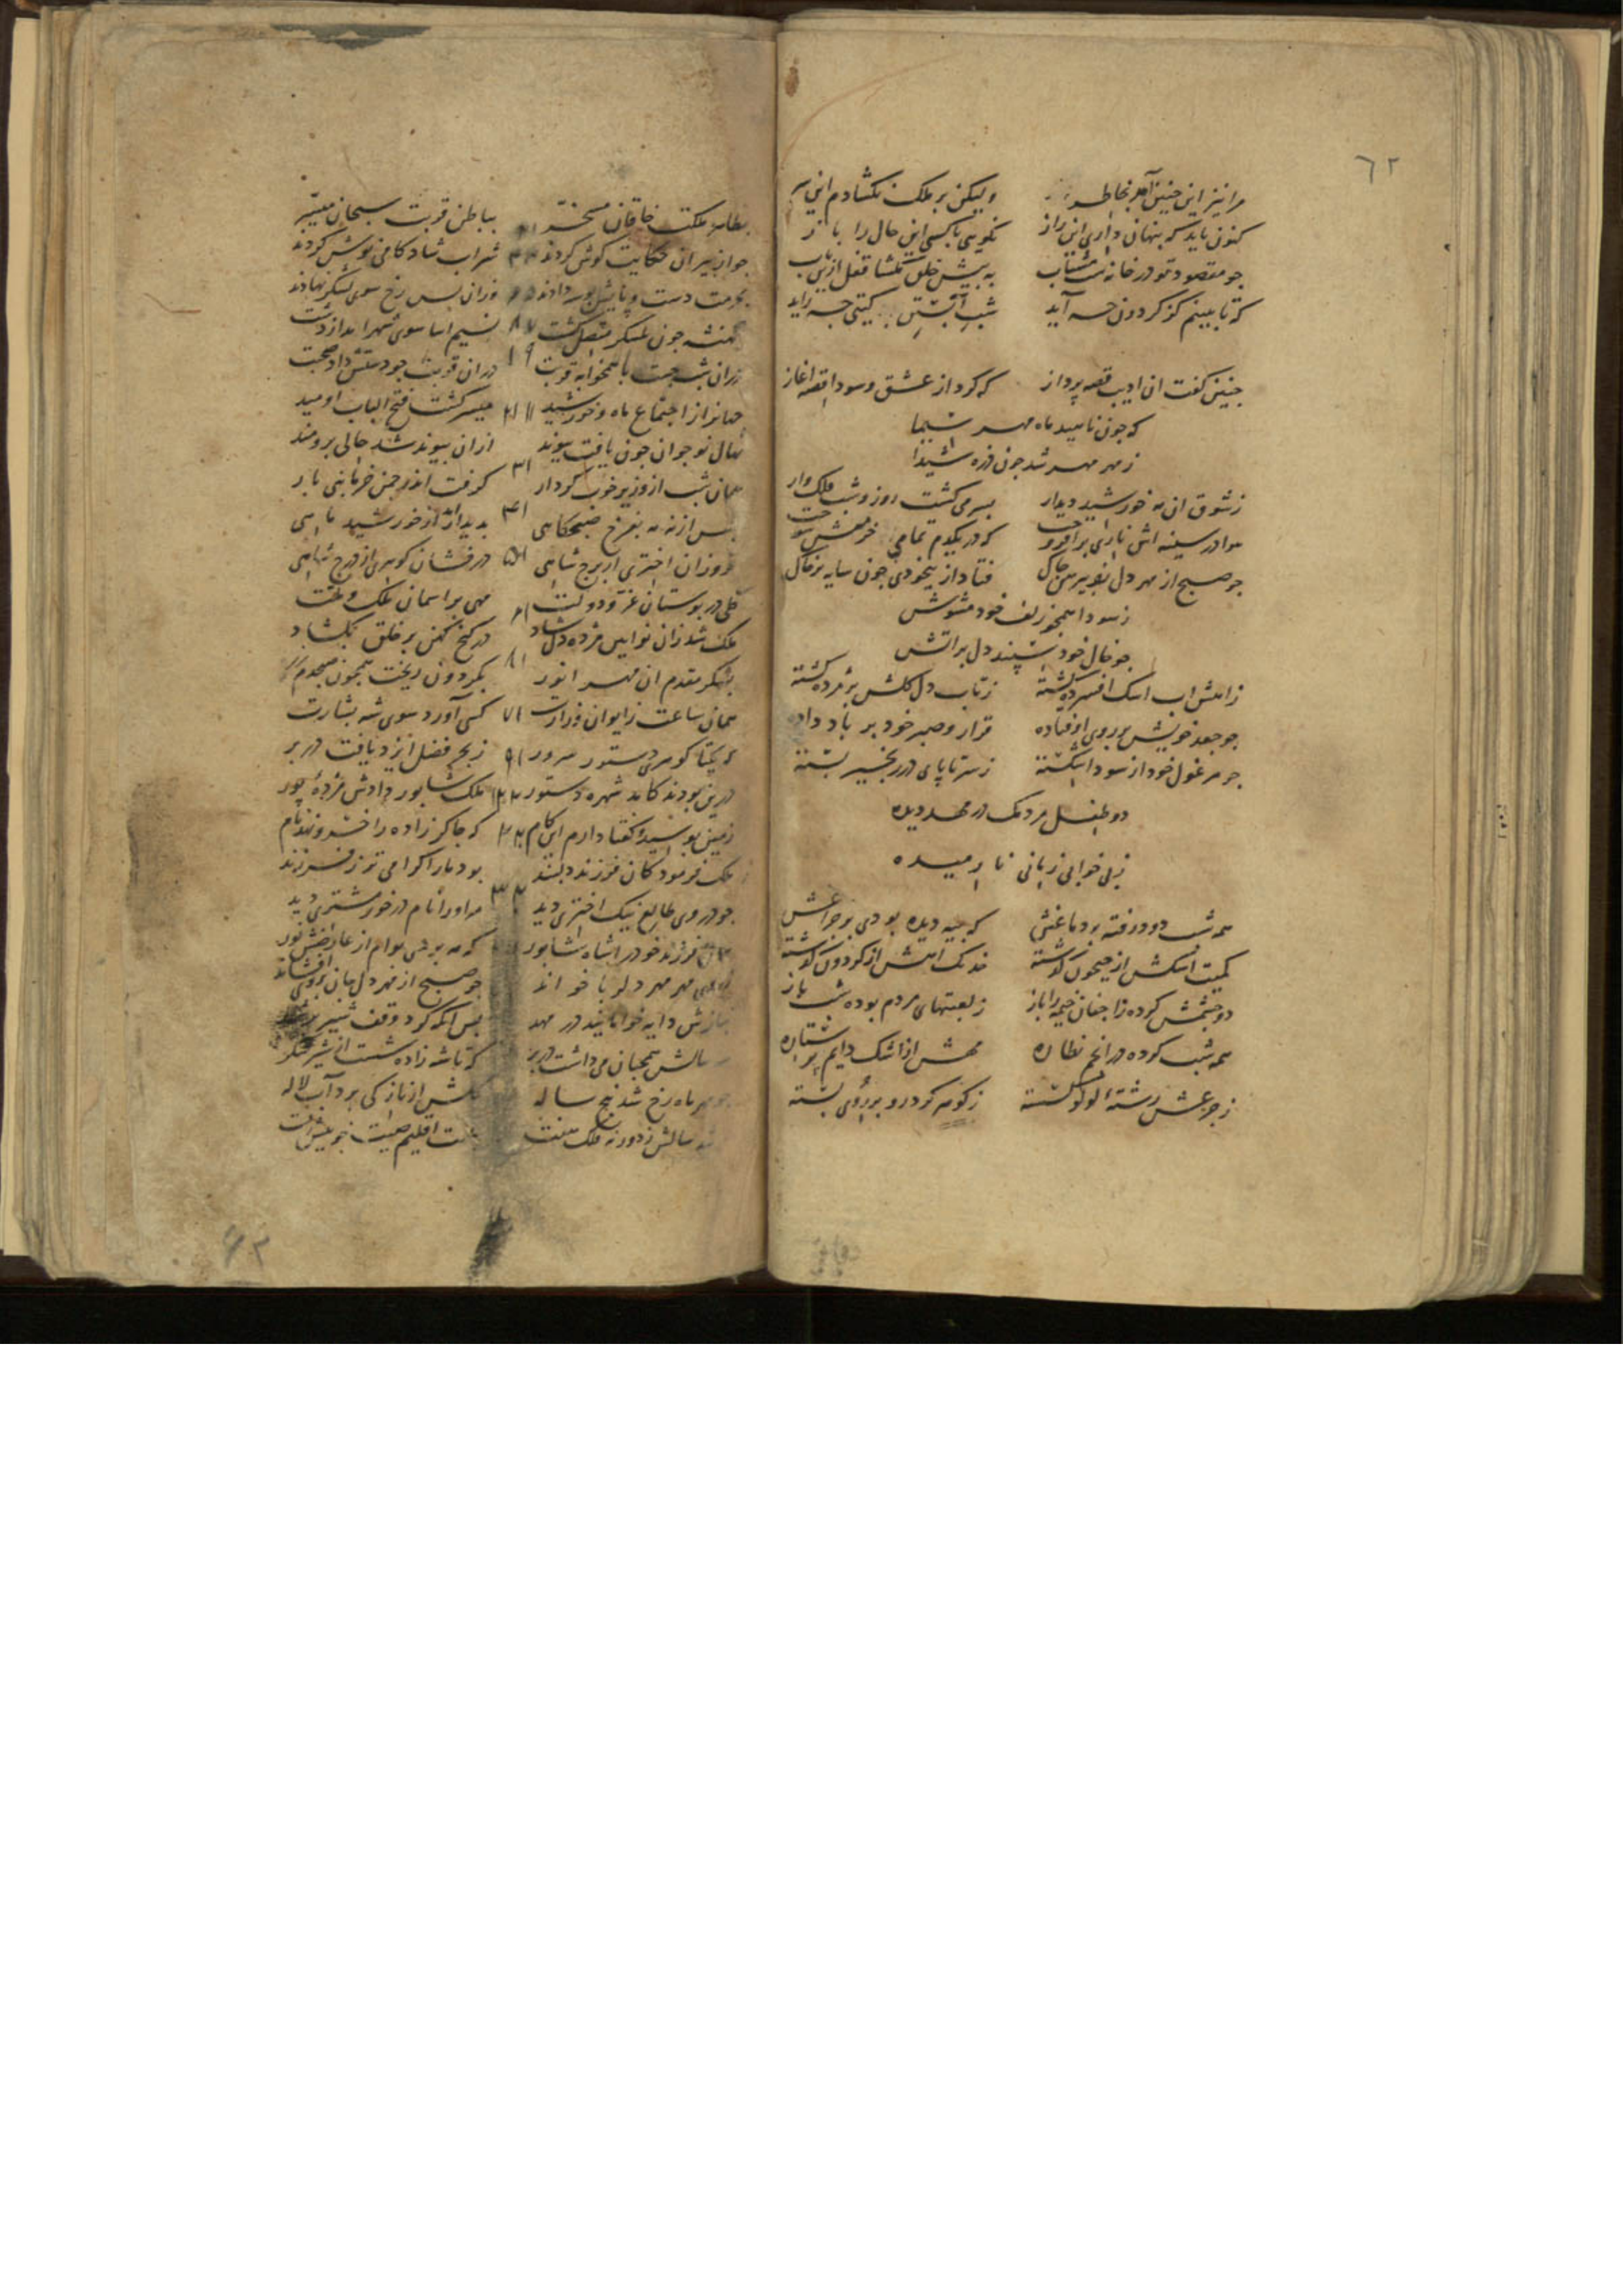 ٦٢
مرا نیز این چنین آمد بخاطر ولیکن بر ملک نکشادم این سر
کنون باید که پنهان داری این راز نکویی با کسی این حال را باز
جو مقصود تو در خانه است مشتاب به پیش خلق مکشا قفل ازین باب
که تا بینم کز کردون چه آید شب آبستن کیتی چه زاید
چنین کفت ان ادیب قصه پرداز که کرد از عشق و سودا قصه اغاز
که جون ناهید ماه مهر سیما
ز مهر مهر شد جون ذره شیدا
ز شوق ان مه خورشید دیدار بسر می کشت روز و شب فلک وار
هوا در سینه اش ناری برافروخت که در یکدم تمامی خرمنش سوخت
جو صبح از مهر دل پیرهن چاک فتاد از بیخودی جون سایه بر خاک
ز سودا همجو زلف خود مشوش
جو خال خود سپند دل بر اتش
ز اتش اب اشک افسرده کشته ز تاب دل کلش پژمرده کشته
جو جعد خویش بر روی اوفتاده قرار و صبر خود بر باد داده
جو مرغول خود از سودا شکسته ز سر تا پای در زنجیر بسته
دو طفل مردمک در مهد دیده
ز بی خوابی زمانی نارمیده
همه شب دود رفته بر دماغش که جیه دیده بودی بر جراغش
کمیت اشکش از جیحون کذشته خدنک اهش از کردون کذشته
دو چشمش کرده زاجفان خیمه را باز ز لعبتهای مردم بوده شب باز
همه شب کرده در انجم نظاره مهش از اشک دایم پر ستاره
ز جزعش رشته لولو کسسته ز کوهر کرد رو بر روی بسته
بظاهر مملکت خاقان مسخر بباطن قربت سبحان میسر
جو از پیر ان حکایت کوش کردند شراب شادکامی نوش کردند
بحرمت دست و پایش بوسه دادند وزان پس رخ سوی لشکر نهادند
شهنشه جون بلشکر متصل کشت نسیم اسا سوی شهر امد از دشت
دران شب جست با همخوابه قربت دران قربت جو دستش داد صحبت
همانز از اجتماع ماه و خورشید میسر کشت فتح الباب اومید
نهال نوجوان جون یافت پیوند ازان پیوند شد حالی برومند
همان شب از وزیر خوب کردار کرفت اندر چمن خرمابنی بار
پس از نه مه بفرخ صبحکاهی بدید آمد از خورشید ماهی
فروزان اختری از برج شاهی درفشان کوهری از درج شاهی
کلی در بوستان عز و دولت مهی بر اسمان ملک و ملت
ملک شد زان نوایین مژده دلشاد در کنج کهن بر خلق بکشاد
بشکر مقدم ان مهر انور بکردون ریخت همجون صبحدم زر
همان ساعت ز ایوان وزارت کسی آورد سوی شه بشارت
که یکتا کوهری دستور سرور ز بحر فضل ایزد یافت در بر
درین بودند کامد شهره دستور ملک شاپور دادش مژدۀ پور
زمین بوسید و کفتا دارم این کام که جاکر زاده را خسرو نهد نام
ملک فرمود کان فرزند دلبند بود ما را کرامی تر ز فرزند
جو در وی طالع نیک اختری دید مر او را نام در خور مشتری دید
فرزند خود را شاه شاپور که مه بردی بوام از عارضش نور
مهر مهر دلربا خواند جو صبح از مهر دل جان بر وی افشاند
بنازش دایه خوابانید در مهد پس انکه کرد وقف شیر
سالش همجنان می داشت در بر که تا شه زاده شست از شیر شکر
جو مهر ماه رخ شد پنج ساله کلش از نازکی برد آب لاله
شد سالش ز دور نه فلک هفت اقلیم
۶۳